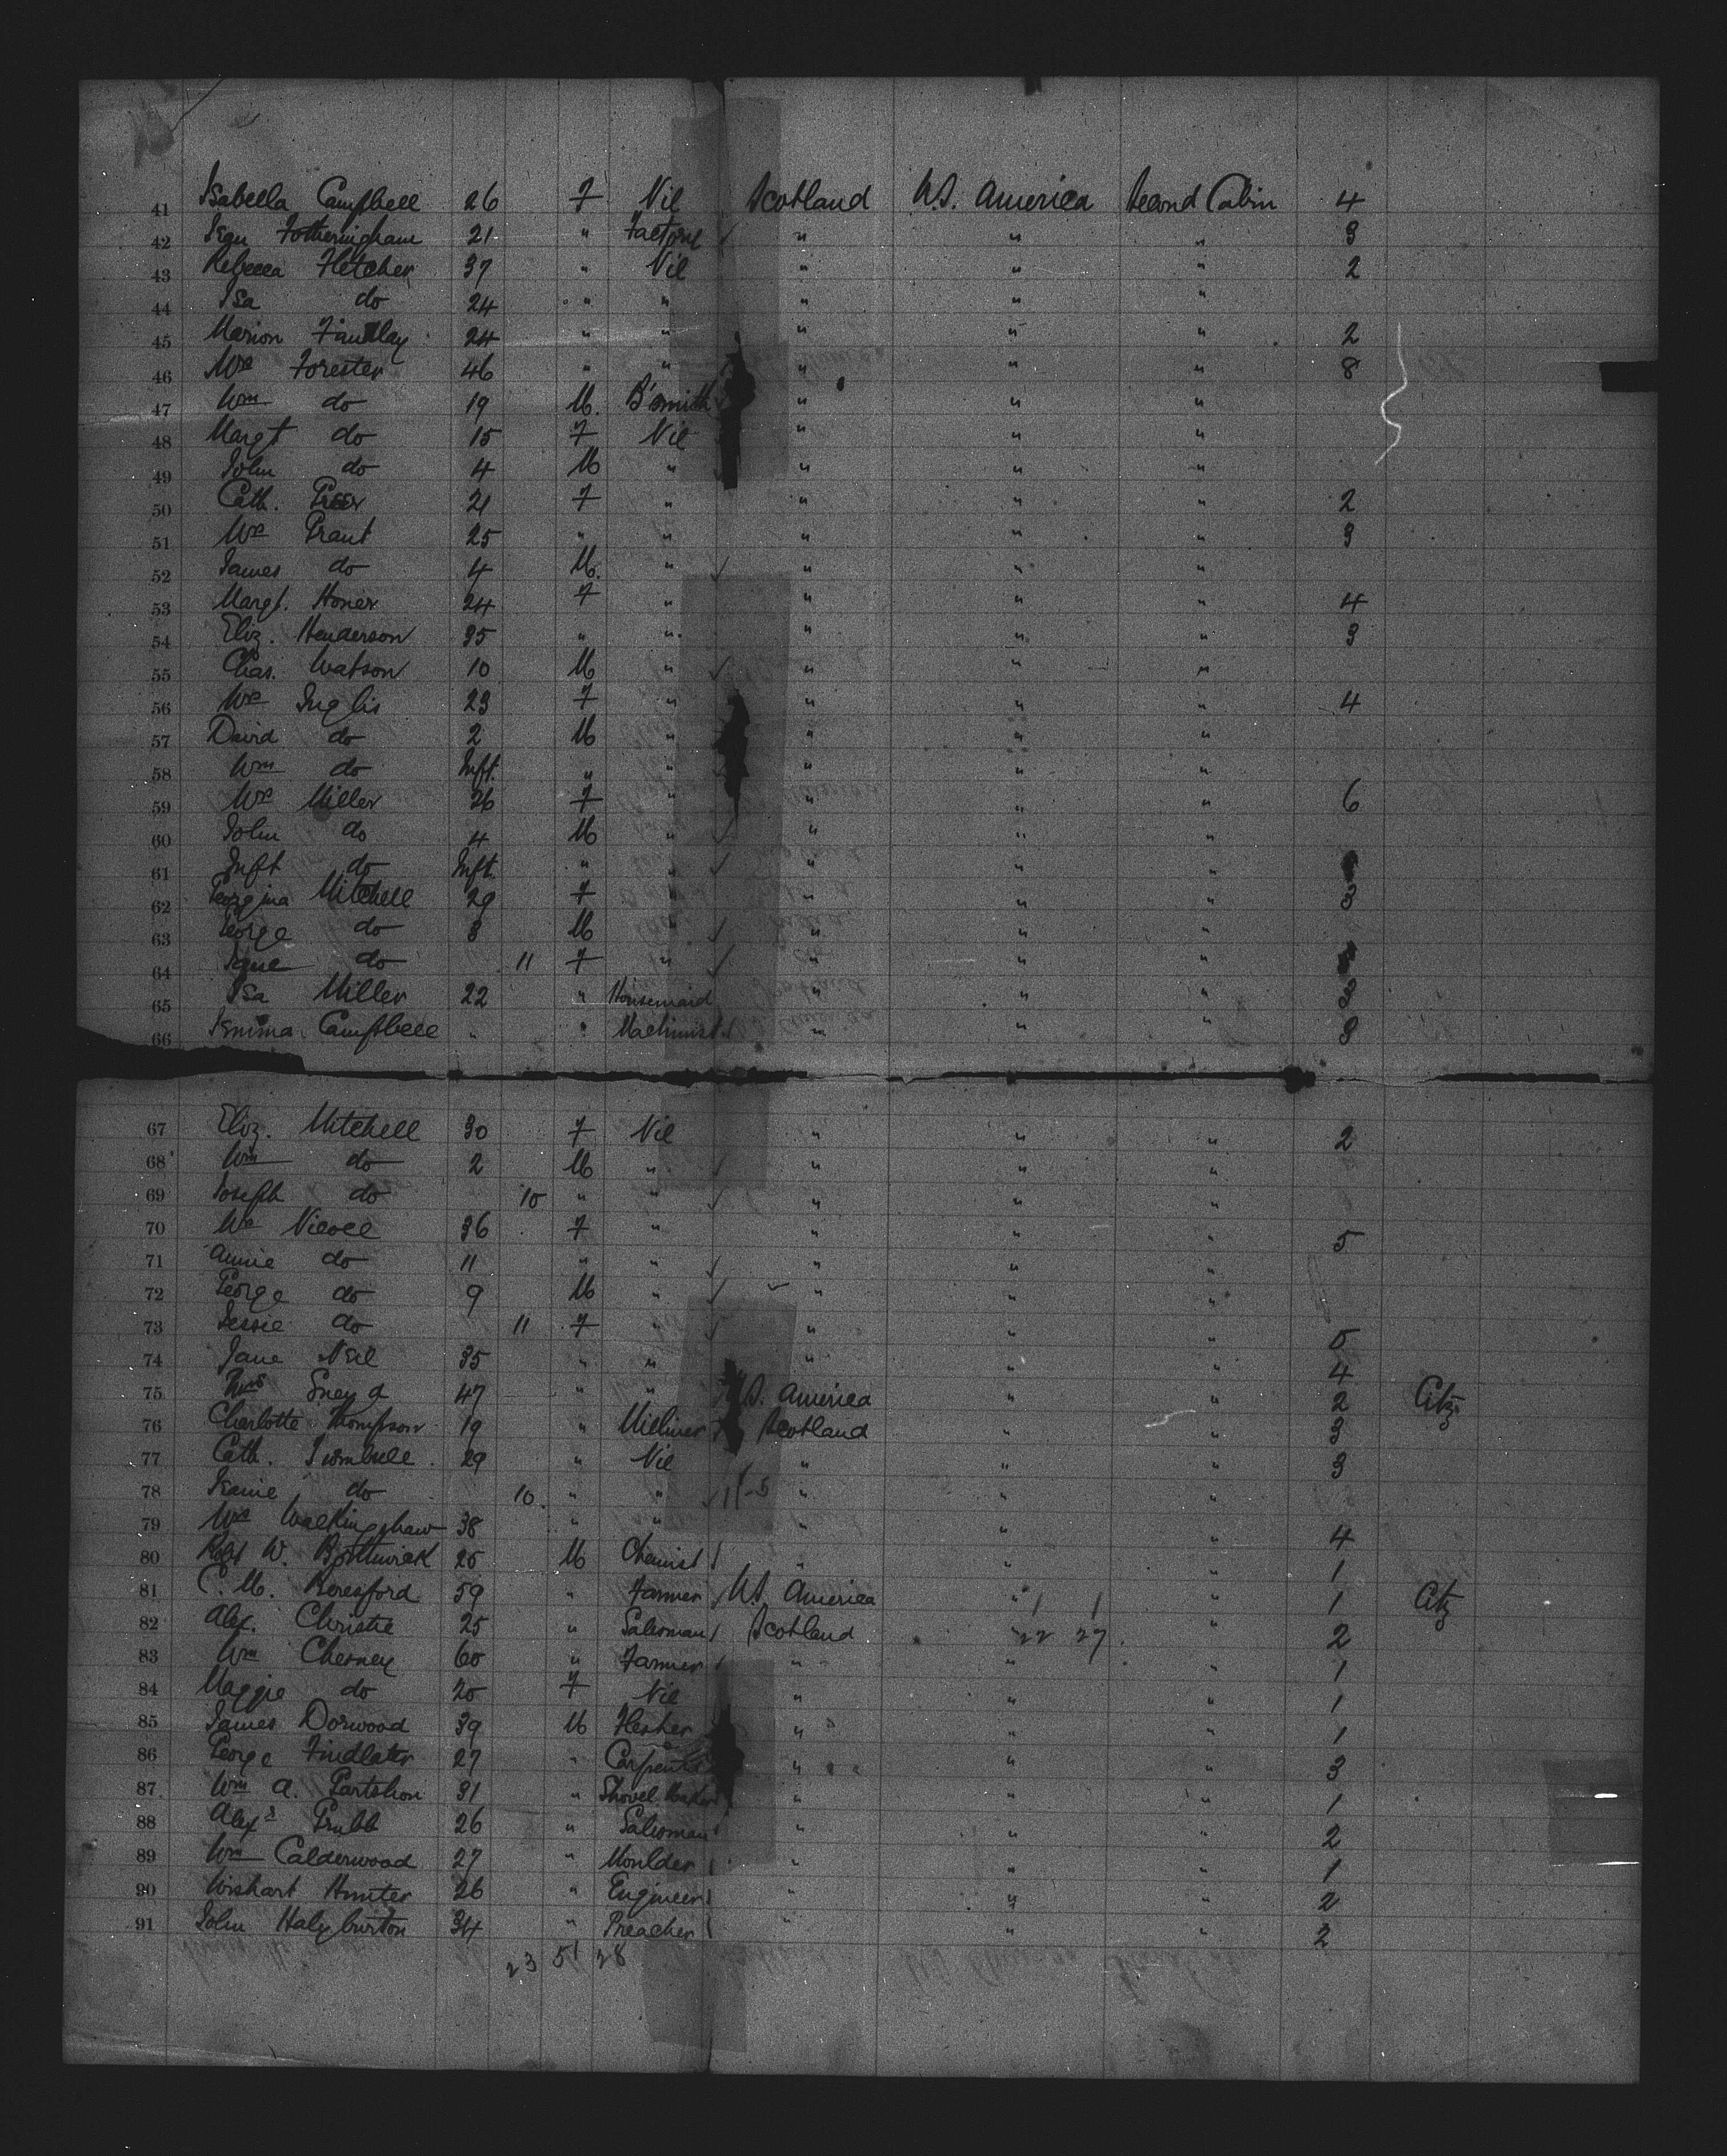 41 Isabella Campbell 26 F Nil Scotland U.S. America Second Cabin 4
42 Jean Fotheringham 21 " Factory " " " 3
43 Rebecca Fletcher 37 " Nil " " " 2
44 Isa do 24 " " " " "
45 Marion Findlay 24 " " " " " 2
46 Mrs Forester 46 " " " " " 8
47 Wm do 19 M. B'smith " " "
48 Margt do 15 F Nil " " "
49 John do 4 M " " " "
50 Cath. Greer 21 F " " " " 2
51 Mrs Grant 25 " " " " " 3
52 James do 4 M. " " " "
53 Margt. Homer 24 F " " " " 4
54 Eliz. Henderson 35 " " " " " 3
55 Chas. Watson 10 M " " " "
56 Mrs Inglis 23 F " " " " 4
57 David do 2 M " " " "
58 Wm do Inft. " " " " "
59 Mrs Miller 26 F " " " 6
60 John do 4 M " " " "
61 Inft do Inft. " " " " "
62 Georgina Mitchell 29 F " " " " 3
63 George do 3 M " " " "
64 Jane do 11 F " " " "
65 Isa Miller 22 " Housemaid " "
66 Jemima Campbell " " Machinist " " " 3
67 Eliz. Mitchell 30 F Nil " " " 2
68 Wm do 2 M " " " "
69 Joseph do 10 " " " " "
70 Mrs Nicoll 36 F " " " " 5
71 Annie do 11 " " " " "
72 George do 9 M " " " "
73 Jessie do 11 F " " " " 5
74 Jane Neil 35 " " " " " 4
75 Mrs 47 " " U.S. America " 2 Citz
76 Charlotte Thompson 19 " Milliner Scotland " " 3
77 Cath. Turnbull 29 " Nil " " " 3
78 Jeanie do 10 " " " " "
79 Mrs Walkingshaw 38 " " " " 4
80 Robt W. Borthwick 25 M Chemist " " 1
81 C. M. Beresford 59 " Farmer U.S. America " " 1 Citz
82 Alex. Christie 25 " Salesman Scotland 22 27 " 2
83 Wm Chesney 60 " Farmer " " " 1
84 Maggie do 20 F Nil " " " 1
85 James Dorwood 39 M Flesher " " " 1
86 George Findlater 27 " Carpenter " " " 3
87 Wm A. 31 " Shovel Maker " " " 1
88 Alexr Grubb 26 " Salesman " " " 2
89 Wm Calderwood 27 " Moulder " " " 1
90 Wishart Hunter 26 " Engineer " " " 2
91 John Halyburton 34 " Preacher " " " 2
23 51 28